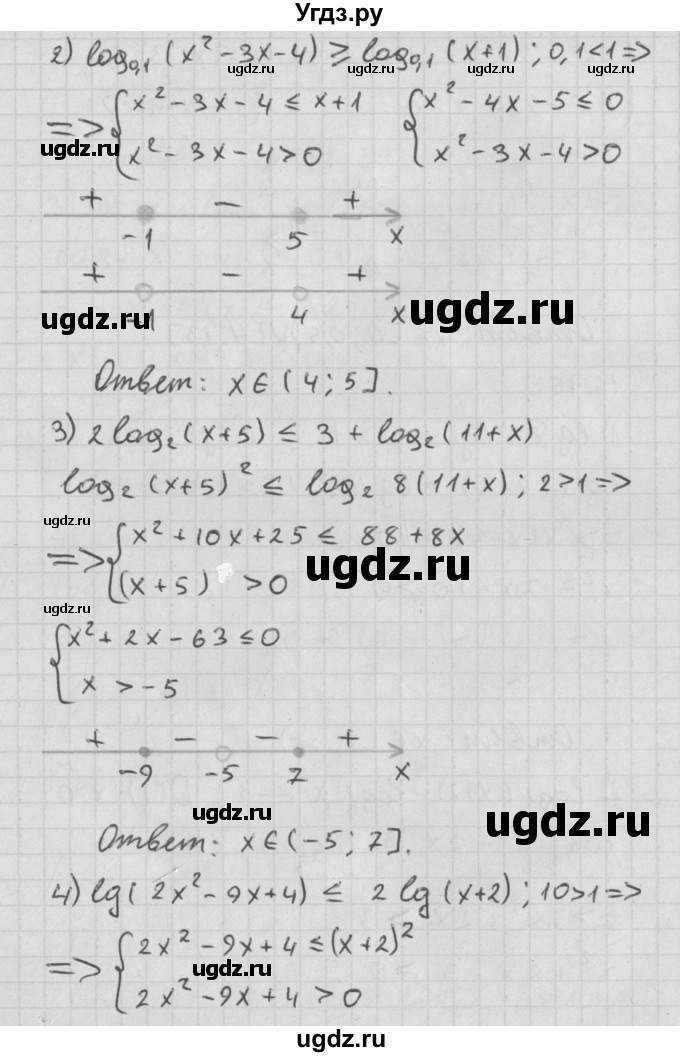 Угдз.ру
2) log₀,₁ (x² - 3x - 4) ≥ log₀,₁ (x+1) ; 0,1 < 1 =>
ugdz.ru ugdz.ru ugdz.ru
=> { x² - 3x - 4 ≤ x + 1 { x² - 4x - 5 ≤ 0
x² - 3x - 4 > 0 x² - 3x - 4 > 0
ugdz.ru ugdz.ru
+ - +
-1 5 x
+ - +
-1 4 x
ugdz.ru ugdz.ru
Ответ: x ∈ (4 ; 5].
3) 2 log₂ (x+5) ≤ 3 + log₂ (11+x)
ugdz.ru
log₂ (x+5)² ≤ log₂ 8(11+x) ; 2 > 1 =>
ugdz.ru
=> { x² + 10x + 25 ≤ 88 + 8x
(x + 5) > 0
ugdz.ru
ugdz.ru
{ x² + 2x - 63 ≤ 0
x > -5
+ - - +
-9 -5 7 x
ugdz.ru
ugdz.ru
Ответ: x ∈ (-5 ; 7].
4) lg( 2x² - 9x + 4) ≤ 2 lg (x+2) ; 10 > 1 =>
ugdz.ru ugdz.ru
=> { 2x² - 9x + 4 ≤ (x+2)²
ugdz.ru
2x² - 9x + 4 > 0
ugdz.ru